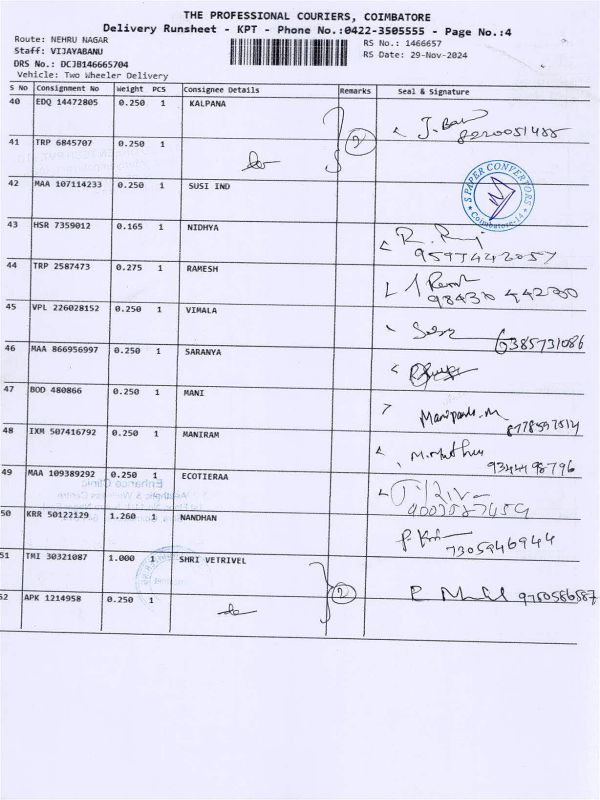 THE PROFESSIONAL COURIERS, COIMBATORE
Delivery Runsheet - KPT - Phone No.:0422-3505555 - Page No.:4
Route: NEHRU NAGAR RS No.: 1466657
Staff: VIJAYABANU RS Date: 29-Nov-2024
DRS No.: DCJB146665704
Vehicle: Two Wheeler Delivery
S No Consignment No Weight PCS Consignee Details Remarks Seal & Signature
40 EDQ 14472805 0.250 1 KALPANA
41 TRP 6845707 0.250 1 2
42 MAA 107114233 0.250 1 SUSI IND
S PAPER CONVERTORS
Coimbatore-14
43 HSR 7359012 0.165 1 NIDHYA
44 TRP 2587473 0.275 1 RAMESH
98430 44200
45 VPL 226028152 0.250 1 VIMALA
6385731086
46 MAA 866956997 0.250 1 SARANYA
47 BOD 480866 0.250 1 MANI
48 IXM 507416792 0.250 1 MANIRAM
9344198796
49 MAA 109389292 0.250 1 ECOTIERAA
Enhance Clinic
50 KRR 50122129 1.260 1 NANDHAN
7305946944
51 TMI 30321087 1.000 1 SHRI VETRIVEL
52 APK 1214958 0.250 1 2 9750586587